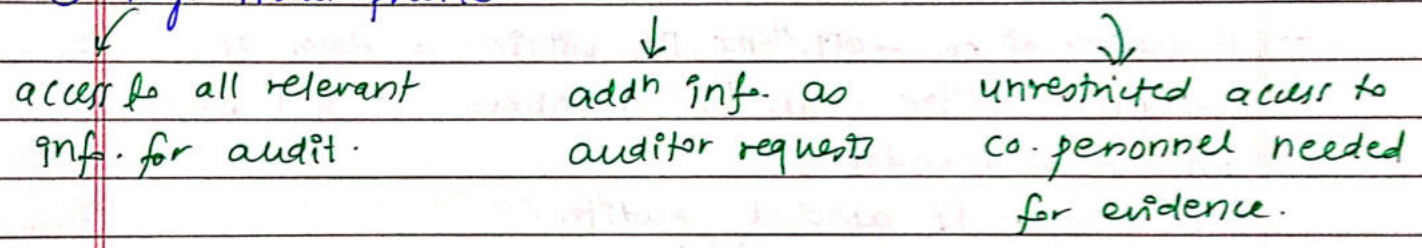 access to all relevant
inf. for audit.
addn inf. as
auditor requests
unrestricted access to
co. personnel needed
for evidence.